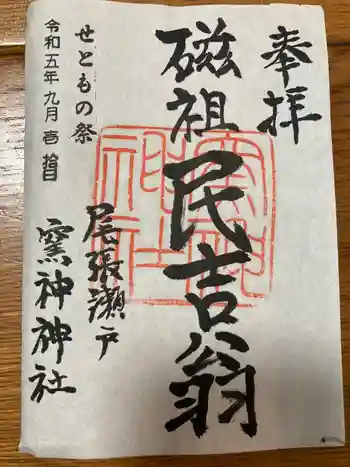 奉拝
磁祖民吉翁
尾張瀬戸
窯神神社
せともの祭
令和五年九月壱拾日